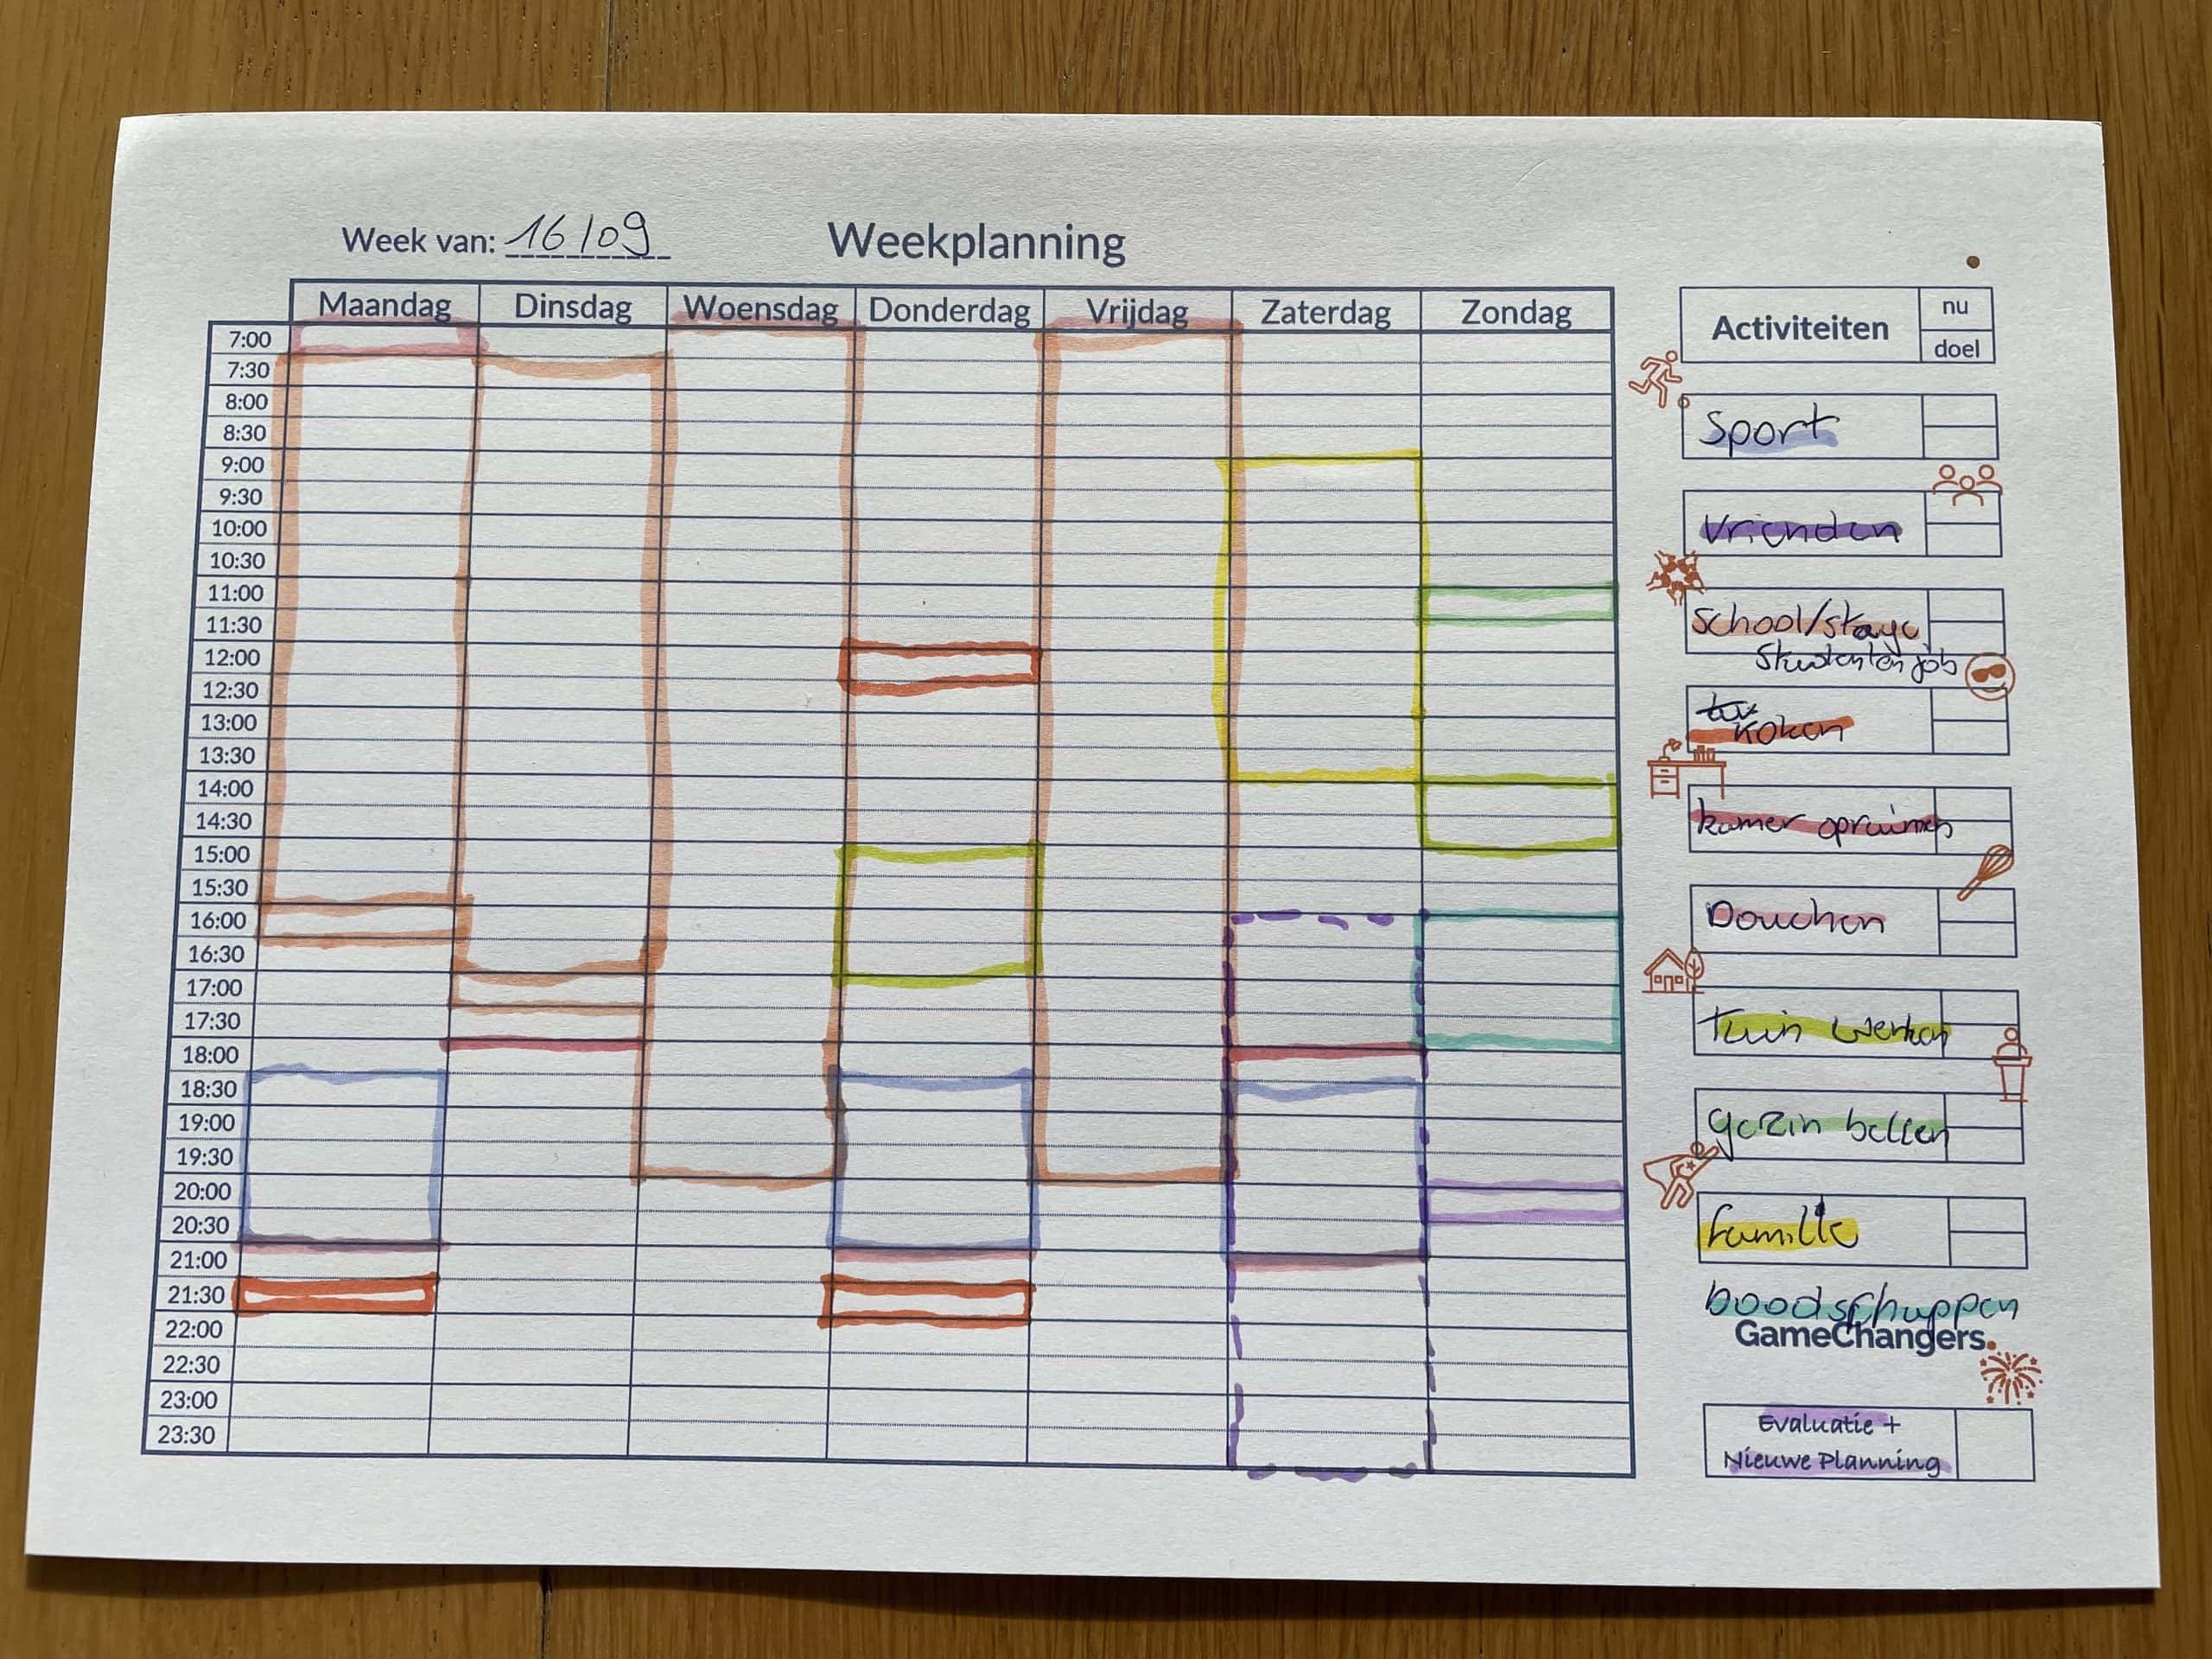 Week van: 16/09
Weekplanning
Maandag Dinsdag Woensdag Donderdag Vrijdag Zaterdag Zondag
7:00
7:30
8:00
8:30
9:00
9:30
10:00
10:30
11:00
11:30
12:00
12:30
13:00
13:30
14:00
14:30
15:00
15:30
16:00
16:30
17:00
17:30
18:00
18:30
19:00
19:30
20:00
20:30
21:00
21:30
22:00
22:30
23:00
23:30
Activiteiten
nu
doel
Sport
Vrienden
school/stage
Studentenjob
tuv
Koken
kamer opruimen
Douchen
tuin werken
gezin bellen
familie
boodschappen
GameChangers.
Evaluatie +
Nieuwe Planning